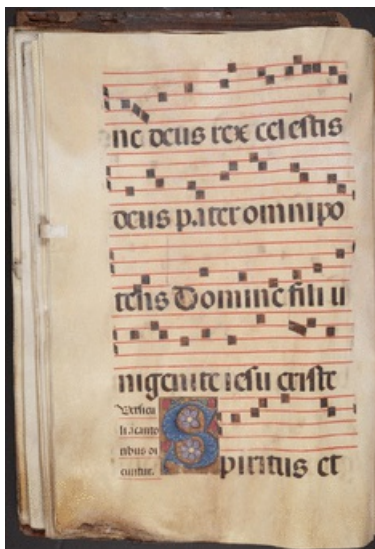 ne deus rex celestis
deus pater omnipo
tens Domine fili u
nigenite iesu criste
Versicu
li a canto
ribus di
cuntur.
Spiritus et